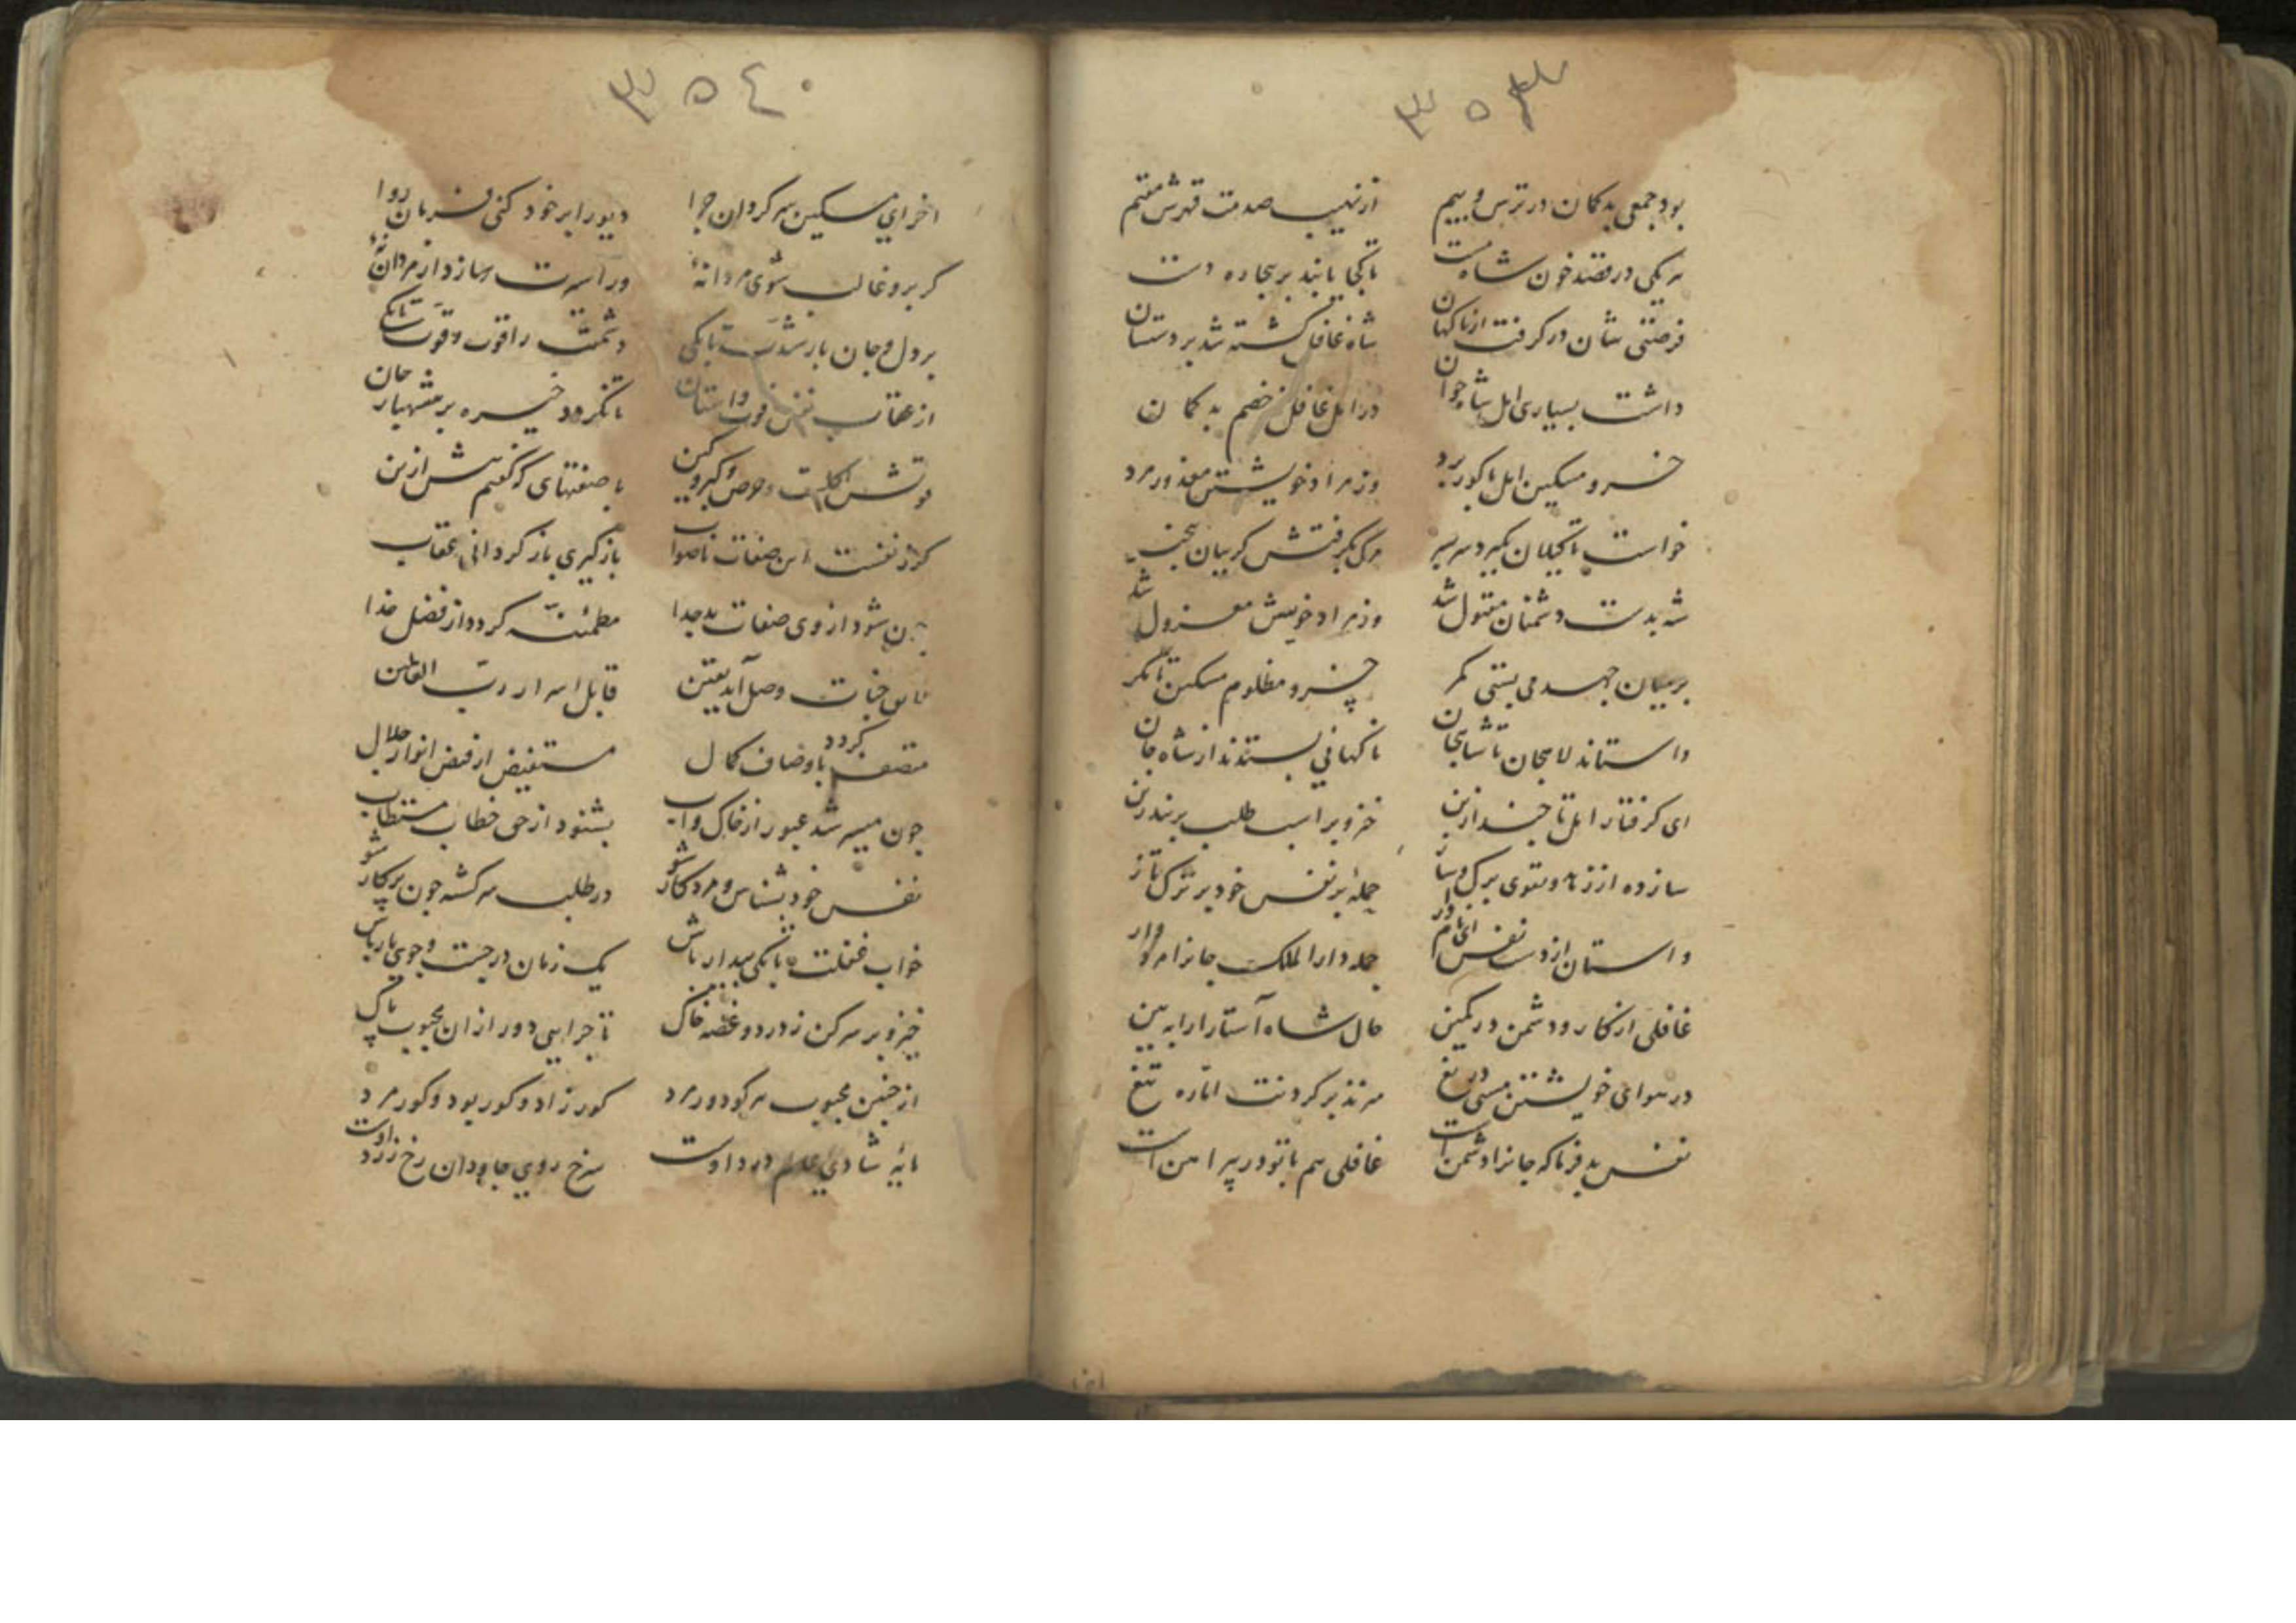 ۳۵۳
بود جمعی بدکمان در ترس و بیم از نهیب صدمت قهرش مقیم
هر یکی در قصد خون شاه مست تا کجا یابند بر بیجاره دست
فرصتی شان در کرفت از ناکهان شاه غافل کشته شد بر دستشان
داشت بسیاری امل شاه جوان در امل غافل ز خصم بدکمان
خسرو مسکین امل با کور برد وز مراد خویشتن معذور مرد
خواست تا کیلان بکیرد سر بسر مرک بکرفتش کریبان بیخبر
شه بدست دشمنان مقتول شد وز مراد خویش معزول شد
بر میان جهد می بستی کمر خسرو مظلوم مسکین تا مکر
واستاند لاهجان تا شاهجان ناکهانی بستدند از شاه جان
ای کرفتار امل تا جند ازین خیز و بر اسب طلب بربند زین
ساز ده از زهد و تقوی برک و ساز حمله بر نفس خود بر ترک تاز
واستان از دست نفس نامدار جمله دار الملک جانرا مردوار
غافلی از کار و دشمن در کمین حال شاه آستارا را ببین
در هوای خویشتن مستی دریغ میزند بر کردنت اماره تیغ
نفس بدفرما که جانرا دشمن است غافلی هم با تو در پیراهن است
۳۵٤
اخر ای مسکین سرکردان جرا دیو را بر خود کنی فرمان روا
کر برو غالب شوی مردانهٔ ور اسیرت سازد از مردان نهٔ
بر دل و جان بار شدت تا بکی دشمنت را قوت و قوت تا بکی
از عقاب نفس قوت واستان تا نکردد خیره بر شهباز جان
قوتش اکلست و حرص و کبر و کین با صفتهای که کفتم بیش ازین
کر ز نفست این صفات ناصواب باز کیری باز کردانی عقاب
جون شود از وی صفات بد جدا مطمئنه کردد از فضل خدا
لایق جنات وصل آید یقین قابل اسرار رب العالمین
متصف کردد باوصاف کمال مستفیض از فیض انوار جلال
جون میسر شد عبور از خاک و اب بشنود از حق خطاب مستطاب
نفس خود بشناس و مرد کار شو در طلب سرکشته جون پرکار شو
خواب غفلت تا بکی بیدار باش یک زمان در جست و جوی یار باش
خیز و بر سر کن ز درد و غصه خاک تا جرایی دور از ان محبوب پاک
از جنین محبوب هر کو دور مرد کور زاد و کور بود و کور مرد
مایهٔ شادی عالم درد اوست سرخ روی جاودان رخ زرد اوست